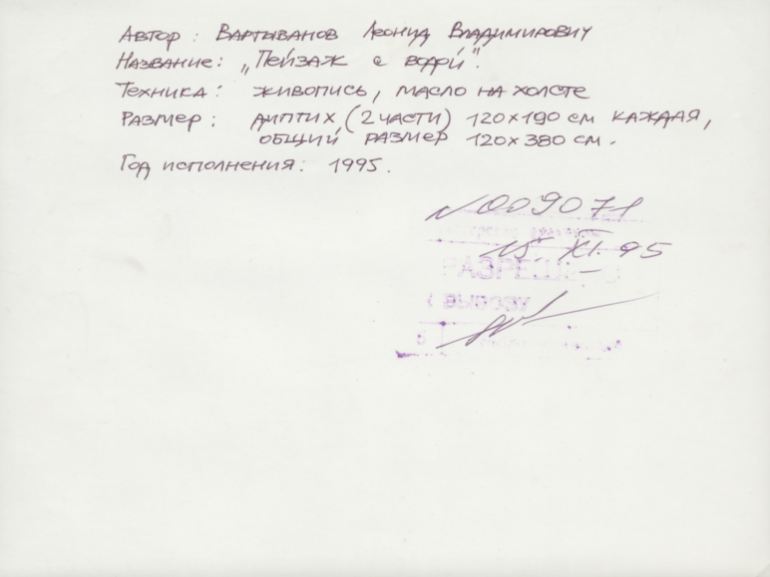 Автор: Вартыванов Леонид Владимирович
Название: „Пейзаж с водой".
Техника: живопись, масло на холсте
Размер: диптих (2 части) 120х190 см каждая,
общий размер 120х380 см.
Год исполнения: 1995.
№009071
15. XI. 95